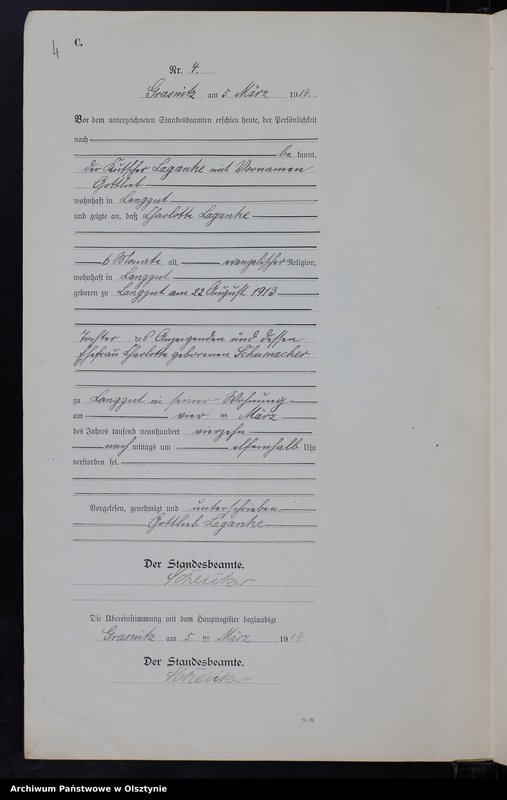 4
C.
Nr. 4.
Grasnitz am 5. März 1914.
Vor dem unterzeichneten Standesbeamten erschien heute, der Persönlichkeit
nach
be kannt,
der Kutscher Laganke mit Vornamen
Gottlieb
wohnhaft in Langgut
und zeigte an, daß Charlotte Laganke
6 Monate alt, evangelischer Religion,
wohnhaft in Langgut
geboren zu Langgut am 22 August 1913
Tochter des Anzeigenden und dessen
Ehefrau Charlotte geborenen Schumacher
zu Langgut in seiner Wohnung
am vier ten März
des Jahres tausend neunhundert vierzehn
nach mittags um elfeinhalb Uhr
verstorben sei.
Vorgelesen, genehmigt und unterschrieben.
Gottlieb Laganke
Der Standesbeamte.
Die Übereinstimmung mit dem Hauptregister beglaubigt
Grasnitz am 5 ten März 1914.
Der Standesbeamte.
Archiwum Państwowe w Olsztynie